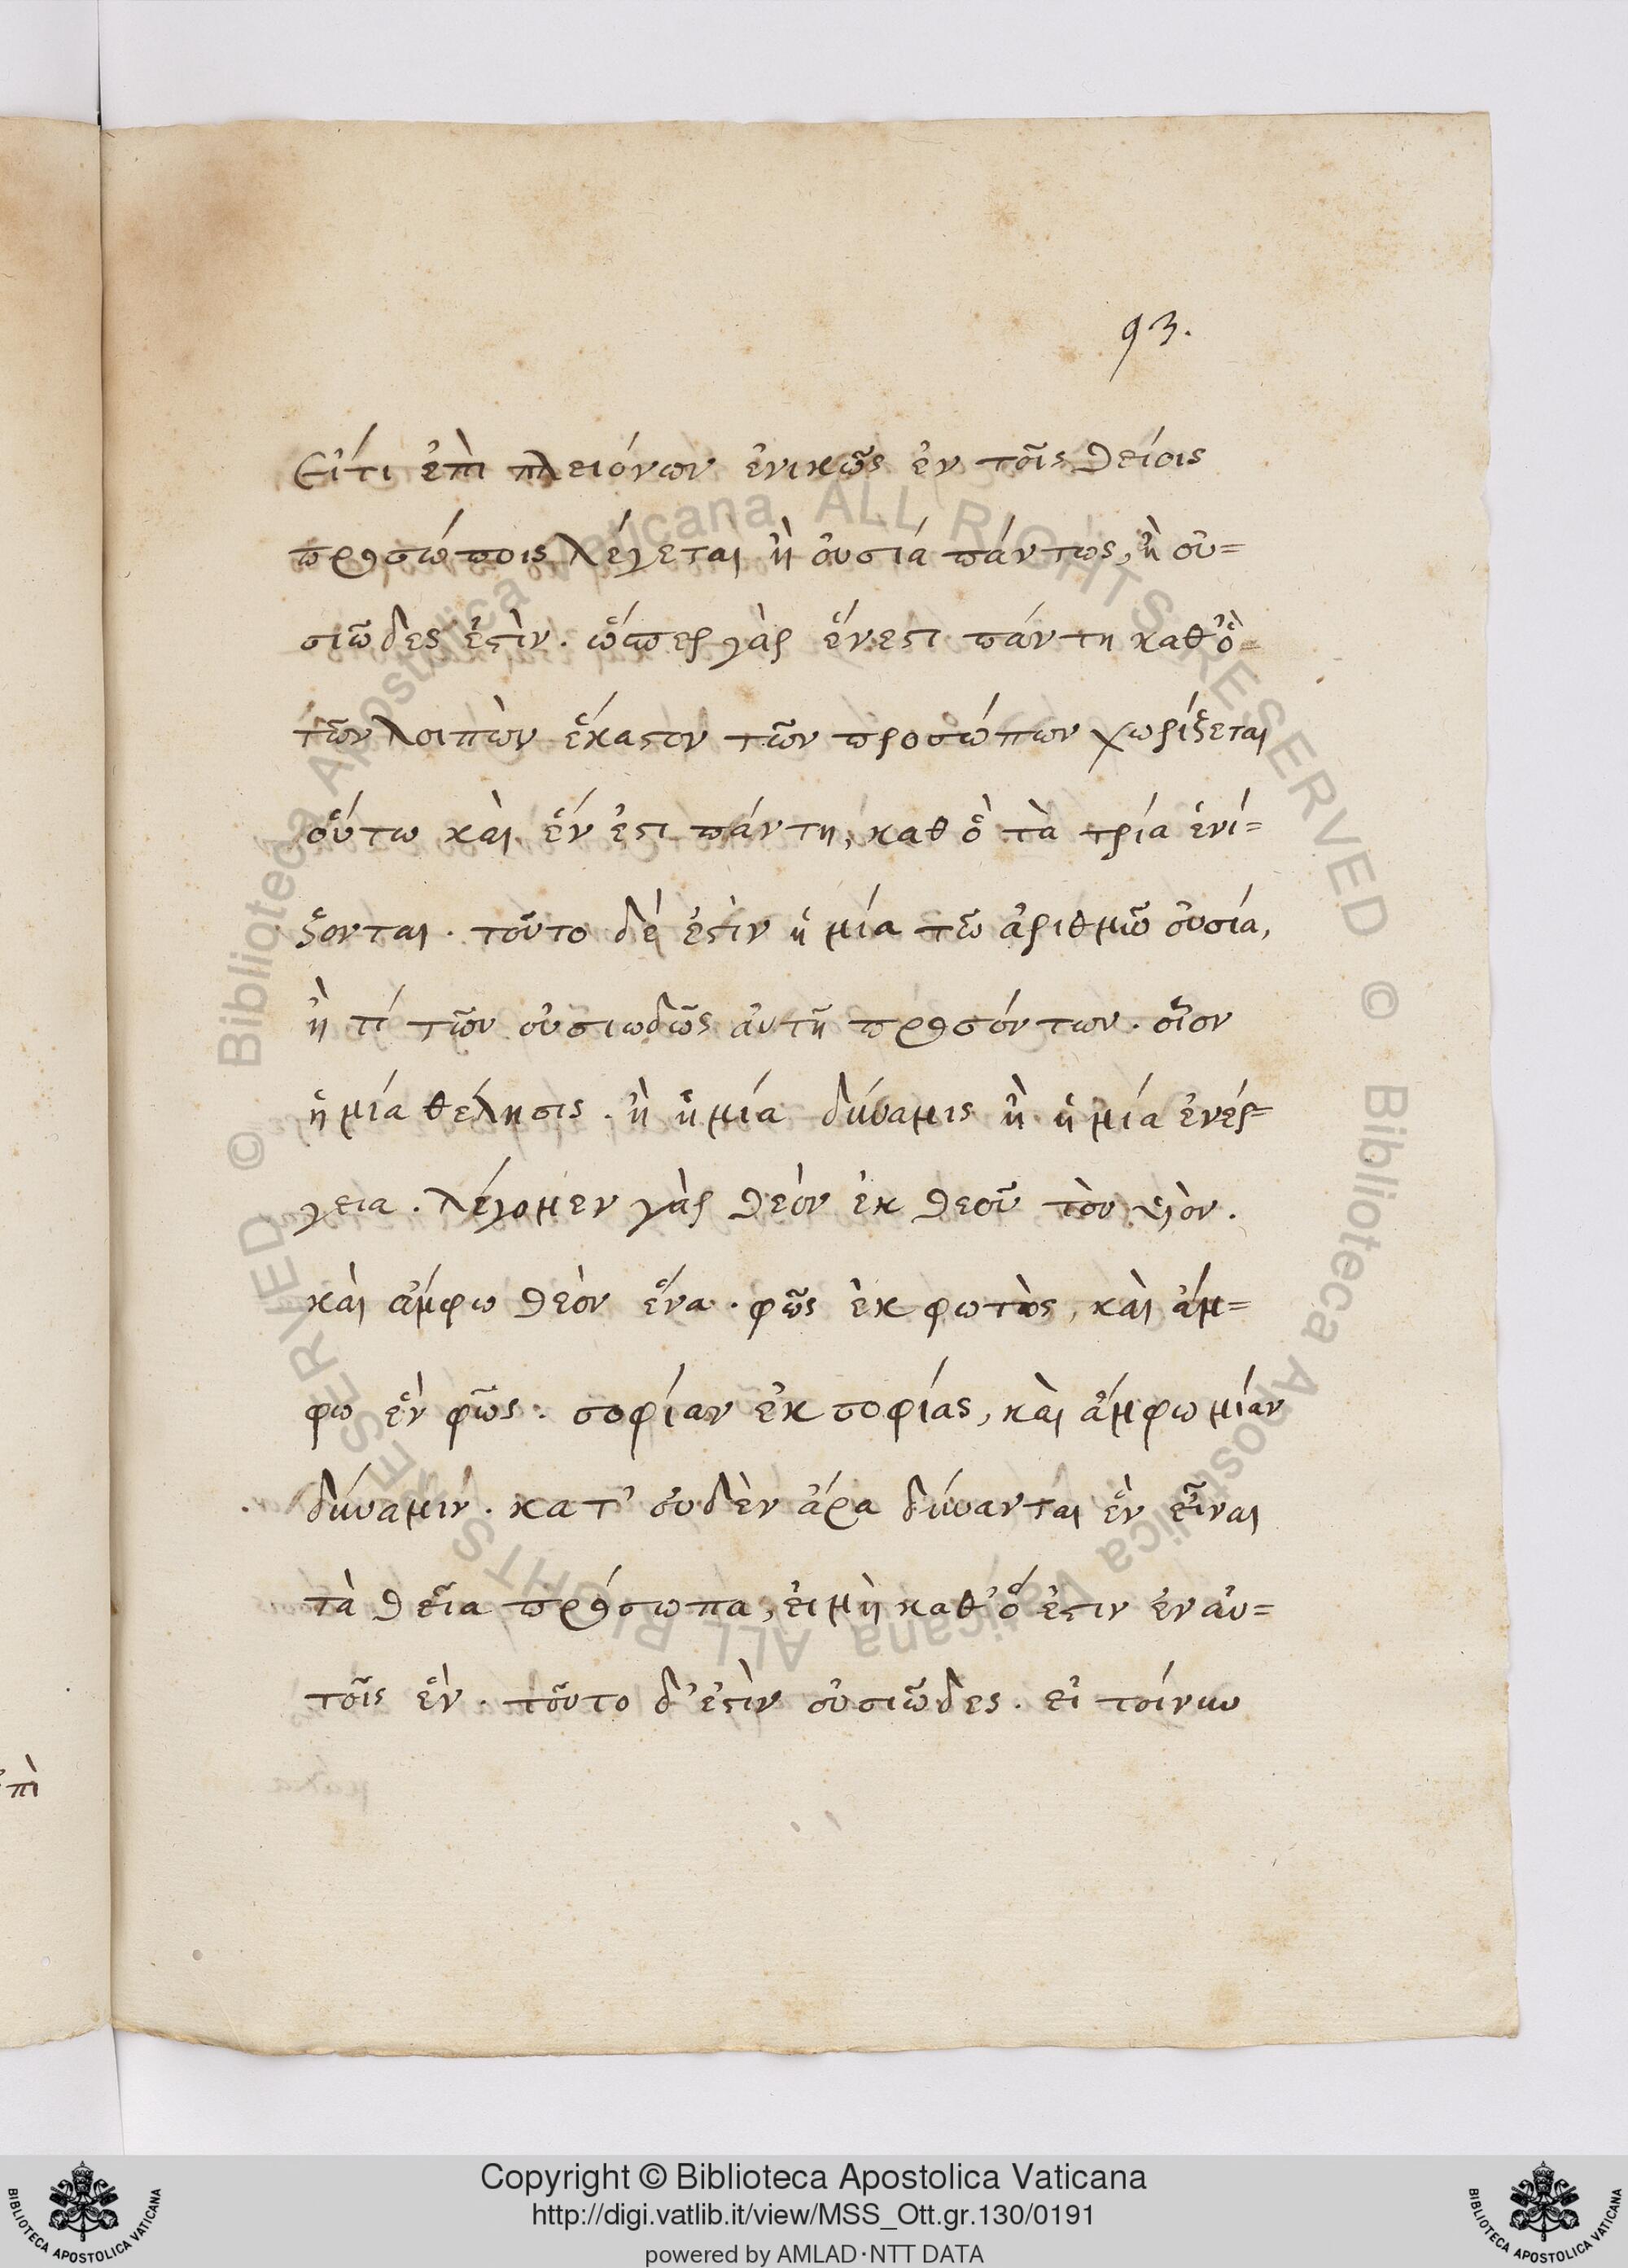 93.
Εἴτι ἐπὶ πλειόνων ἑνικῶς ἐν τοῖς θείοις
προσώποις λέγεται ἢ οὐσιά πάντως, ἢ οὐ=
σιῶδες ἐστὶν. ὥσπερ γὰρ ἕνεστι πάντη καθ' ὃ
τῶν λοιπῶν ἕκαστον τῶν προσώπων χωρίζεται
οὕτω καὶ ἕν ἐστι πάντη, καθ ὃ τὰ τρία ἑνί=
ζονται. τοῦτο δέ ἐστὶν ἡ μία τῶ ἀριθμῶ οὐσία,
ἢ τί τῶν οὐσιωδῶς ἀυτῆ προσόντων. οἷον
ἡ μία θέλησις. ἢ ἡ μία δύναμις ἢ ἡ μία ἐνέρ=
γεια. λέγομεν γὰρ θεόν ἐκ θεοῦ τὸν υἱὸν.
καὶ ἄμφω θεὸν ἕνα. φῶς ἐκ φωτὸς, καὶ ἄμ=
φω ἓν φῶς. σοφίαν ἐκ σοφίας, καὶ ἄμφω μίαν
δύναμιν. κατ' οὐδὲν ἄρα δύνανται ἓν εἶναι
τὰ θεῖα πρόσωπα, ἐι μὴ καθ' ὅ ἐστιν ἐν ἀυ=
τοῖς ἓν. τοῦτο δ' ἐστὶν οὐσιῶδες. εἰ τοίνυν
πὶ
© Biblioteca Apostolica Vaticana ALL RIGHTS RESERVED © Biblioteca Apostolica Vaticana ALL RIGHTS RESERVED
Copyright © Biblioteca Apostolica Vaticana
http://digi.vatlib.it/view/MSS_Ott.gr.130/0191
powered by AMLAD·NTT DATA
BIBLIOTECA APOSTOLICA VATICANA
BIBLIOTECA APOSTOLICA VATICANA